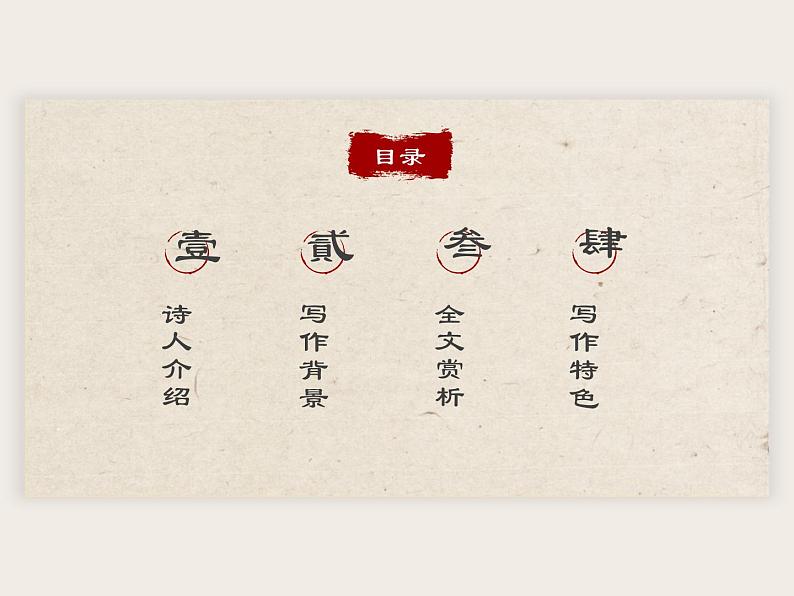 目录
壹
诗人介绍
貳
写作背景
叁
全文赏析
肆
写作特色